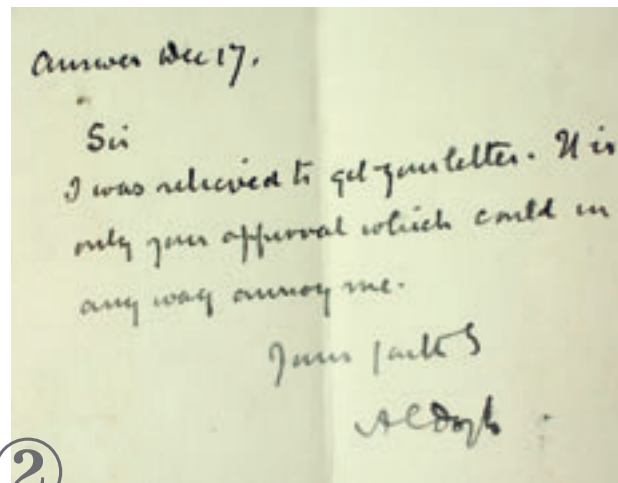 Answer Dec 17.
Sir
I was relieved to get your letter. It is
only your approval which could in
any way annoy me.
Yours faith
A C Doyle
2